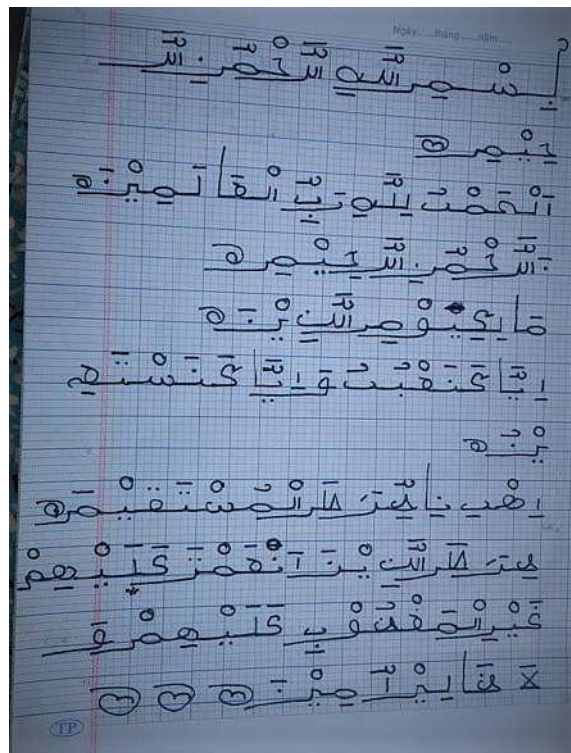 Ngày.....tháng.....năm.....
بسم الله الرحمن الر
حيم
الحمد لله رب العالمين
الرحمن الرحيم
مالك يوم الدين
إياك نعبد وإياك نستع
ين
اهدنا الصراط المستقيم
صراط الذين أنعمت عليهم
غير المغضوب عليهم و
لا الضالين آمين
TP